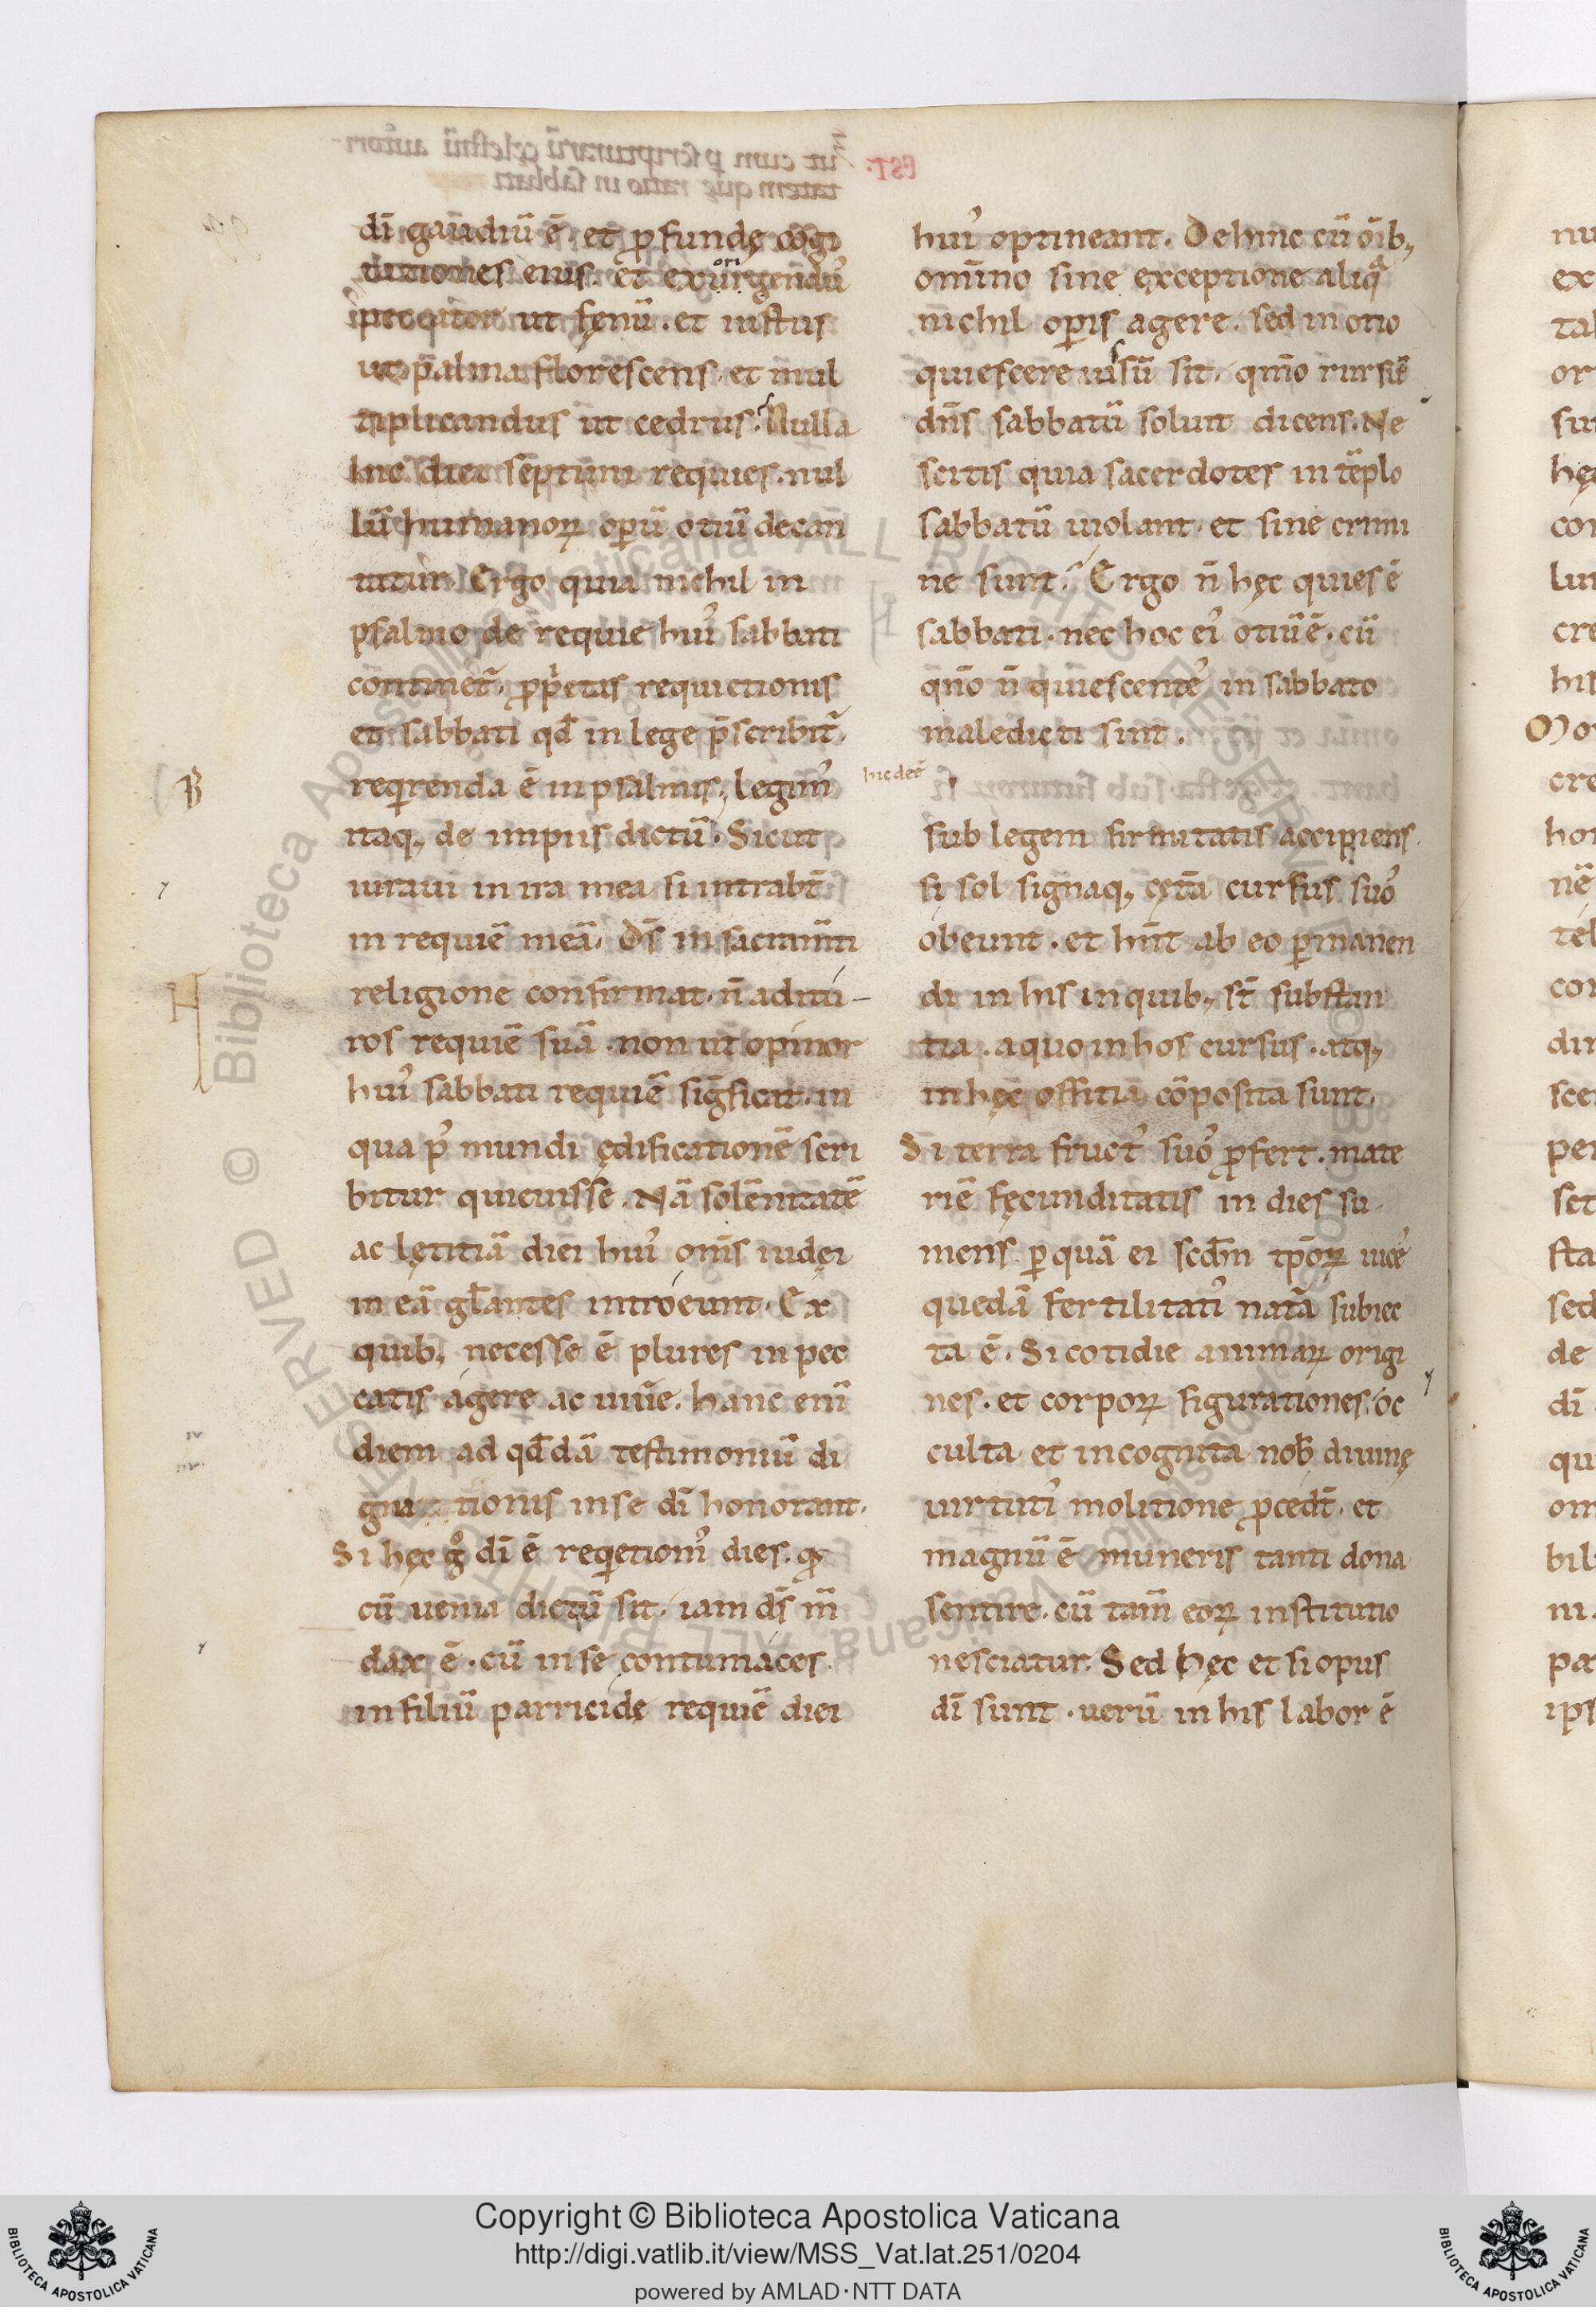 dī gaudiū ē. et ꝓfundę cogi
tationes eius. et exurgendū
peccator ut fęnū. et iustus
ut palma florescens. et mul
tiplicandus ut cedrus. Nulla
hic diei septimi requies. nul
lū humanoꝝ opū otiū decan
tatur. Ergo quia nichil in
psalmo de requie hui᾽ sabbati
continet᷑. ꝓpetas requietionis
et sabbati qđ in lege p̄scribit᷑
reqrenda ē in psalmis. legim᾽
itaq; de impiis dictū. Sicut
iuraui in ira mea si intrabt̄
in requiē meā. Ds̄ in sacram̄ti
religione confirmat. n̄ aditu-
ros requiē suā. non ut opinor
hui᾽ sabbati requiē sigficat. in
qua p᾽ mundi ędificationē scri
bitur quieuisse. Nā solēnitatē
ac lętitiā diei hui᾽ om̄s iudęi
in eā gl̄antes introeunt. Ex
quib; necesse ē plures in pec
catis agere ac uiūe. hanc enī
diem ad qđdā testimoniū di
gna tionis in se dī honorant.
Si hęc gͦ dī ē reqetioni᾽ dies. q
cū uenia dictū sit. iam ds̄ m̄
dax ē. cū in se contumaces
in filiū parricidę requiē diei
hui᾽ optineant. Dehinc cū oīb;
omīno sine exceptione aliqͣ
nichil opis agere. sed in otio
quiescere iussū sit. qm̄o rursū
dn̄s sabbatū soluit dicens. Ne
scitis quia sacerdotes in tēplo
sabbatū uiolant. et sine crimi
ne sunt. Ergo n̄ hęc quies ē
sabbati. nec hoc ei᾽ otiū ē. cū
qn̄o n̄ quiescente᾽ in sabbato
maledicti sint.
hic deē
sub legem firmitatis accipiens.
si sol signaq; cęta cursus suo᾽
obeunt. et hn̄t ab eo pmanen
di in his in quib; st̄ substan
tia. a quo in hos cursus. atq;
in hęc offitia cōposita sunt.
Si terra fruct᾽ suo᾽ ꝓfert. mate
riē fęcunditatis in dies su
mens. p quā ei scd̄m tp̄oꝝ uice᾽
quedā fertilitati᾽ nata subiec
ta ē. Si cotidie animaꝝ origi
nes. et corpoꝝ figurationes oc
culta et incognita nob̄ diuinę
uirtuti᾽ molitione ꝓcedt̄. et
magnū ē muneris tanti dona
sentire. cū tam̄ eoꝝ institutio
nesciatur. Sed hęc et si opus
dī sunt. uerū in his labor ē
Copyright © Biblioteca Apostolica Vaticana
http://digi.vatlib.it/view/MSS_Vat.lat.251/0204
powered by AMLAD·NTT DATA